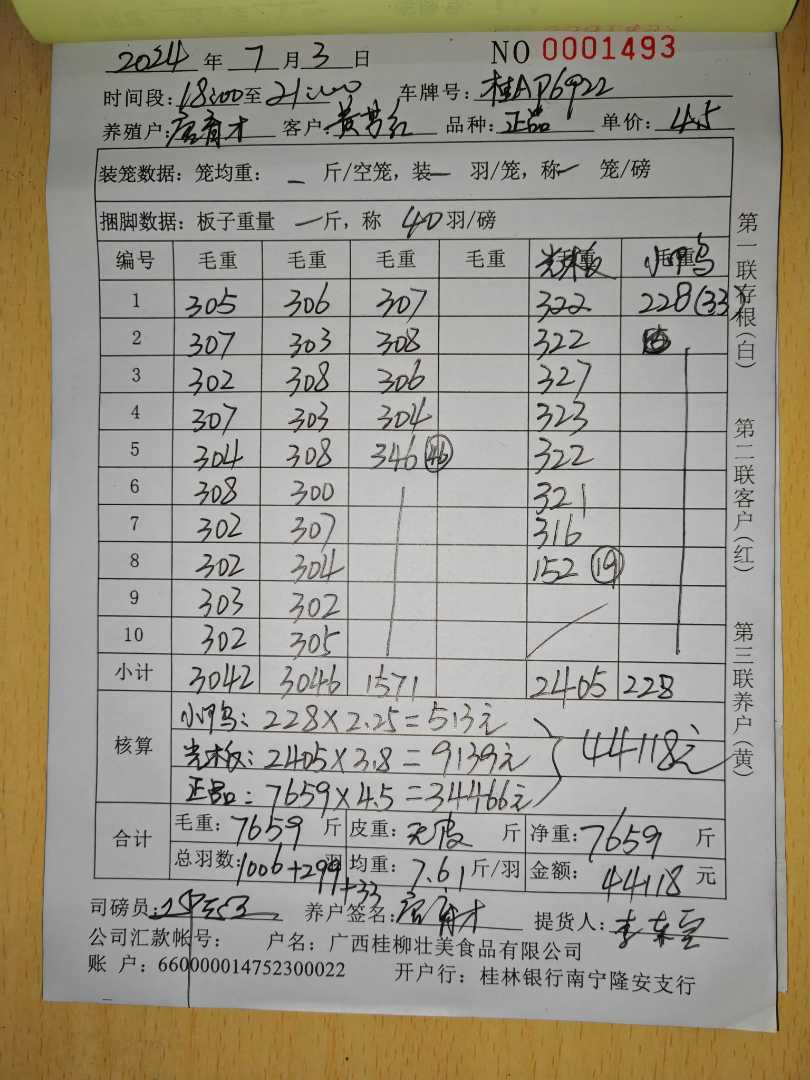 2024 年 7 月 3 日 NO 0001493
时间段: 18:00 至 21:00 车牌号: 桂AP6922
养殖户: 唐育才 客户: 品种: 正品 单价: 4.5
装笼数据: 笼均重: — 斤/空笼, 装 — 羽/笼, 称 — 笼/磅
捆脚数据: 板子重量 — 斤, 称 40 羽/磅
编号 毛重 毛重 毛重 毛重 光板 小鸭
1 305 306 307 322 228(33)
2 307 303 308 322
3 302 308 306 327
4 307 303 304 323
5 304 308 346 46 322
6 308 300 321
7 302 307 316
8 302 304 152 19
9 303 302
10 302 305
小计 3042 3046 1571 2405 228
核算
小鸭: 228×2.25=513元
光板: 2405×3.8=9139元
正品: 7659×4.5=34466元
44118元
合计
毛重: 7659 斤 皮重: 无皮 斤 净重: 7659 斤
总羽数: 1006+299+33 羽 均重: 7.61 斤/羽 金额: 44118 元
司磅员: 养户签名: 唐育才 提货人:
公司汇款帐号: 户名: 广西桂柳壮美食品有限公司
账 户: 660000014752300022 开户行: 桂林银行南宁隆安支行
第一联存根(白) 第二联客户(红) 第三联养户(黄)